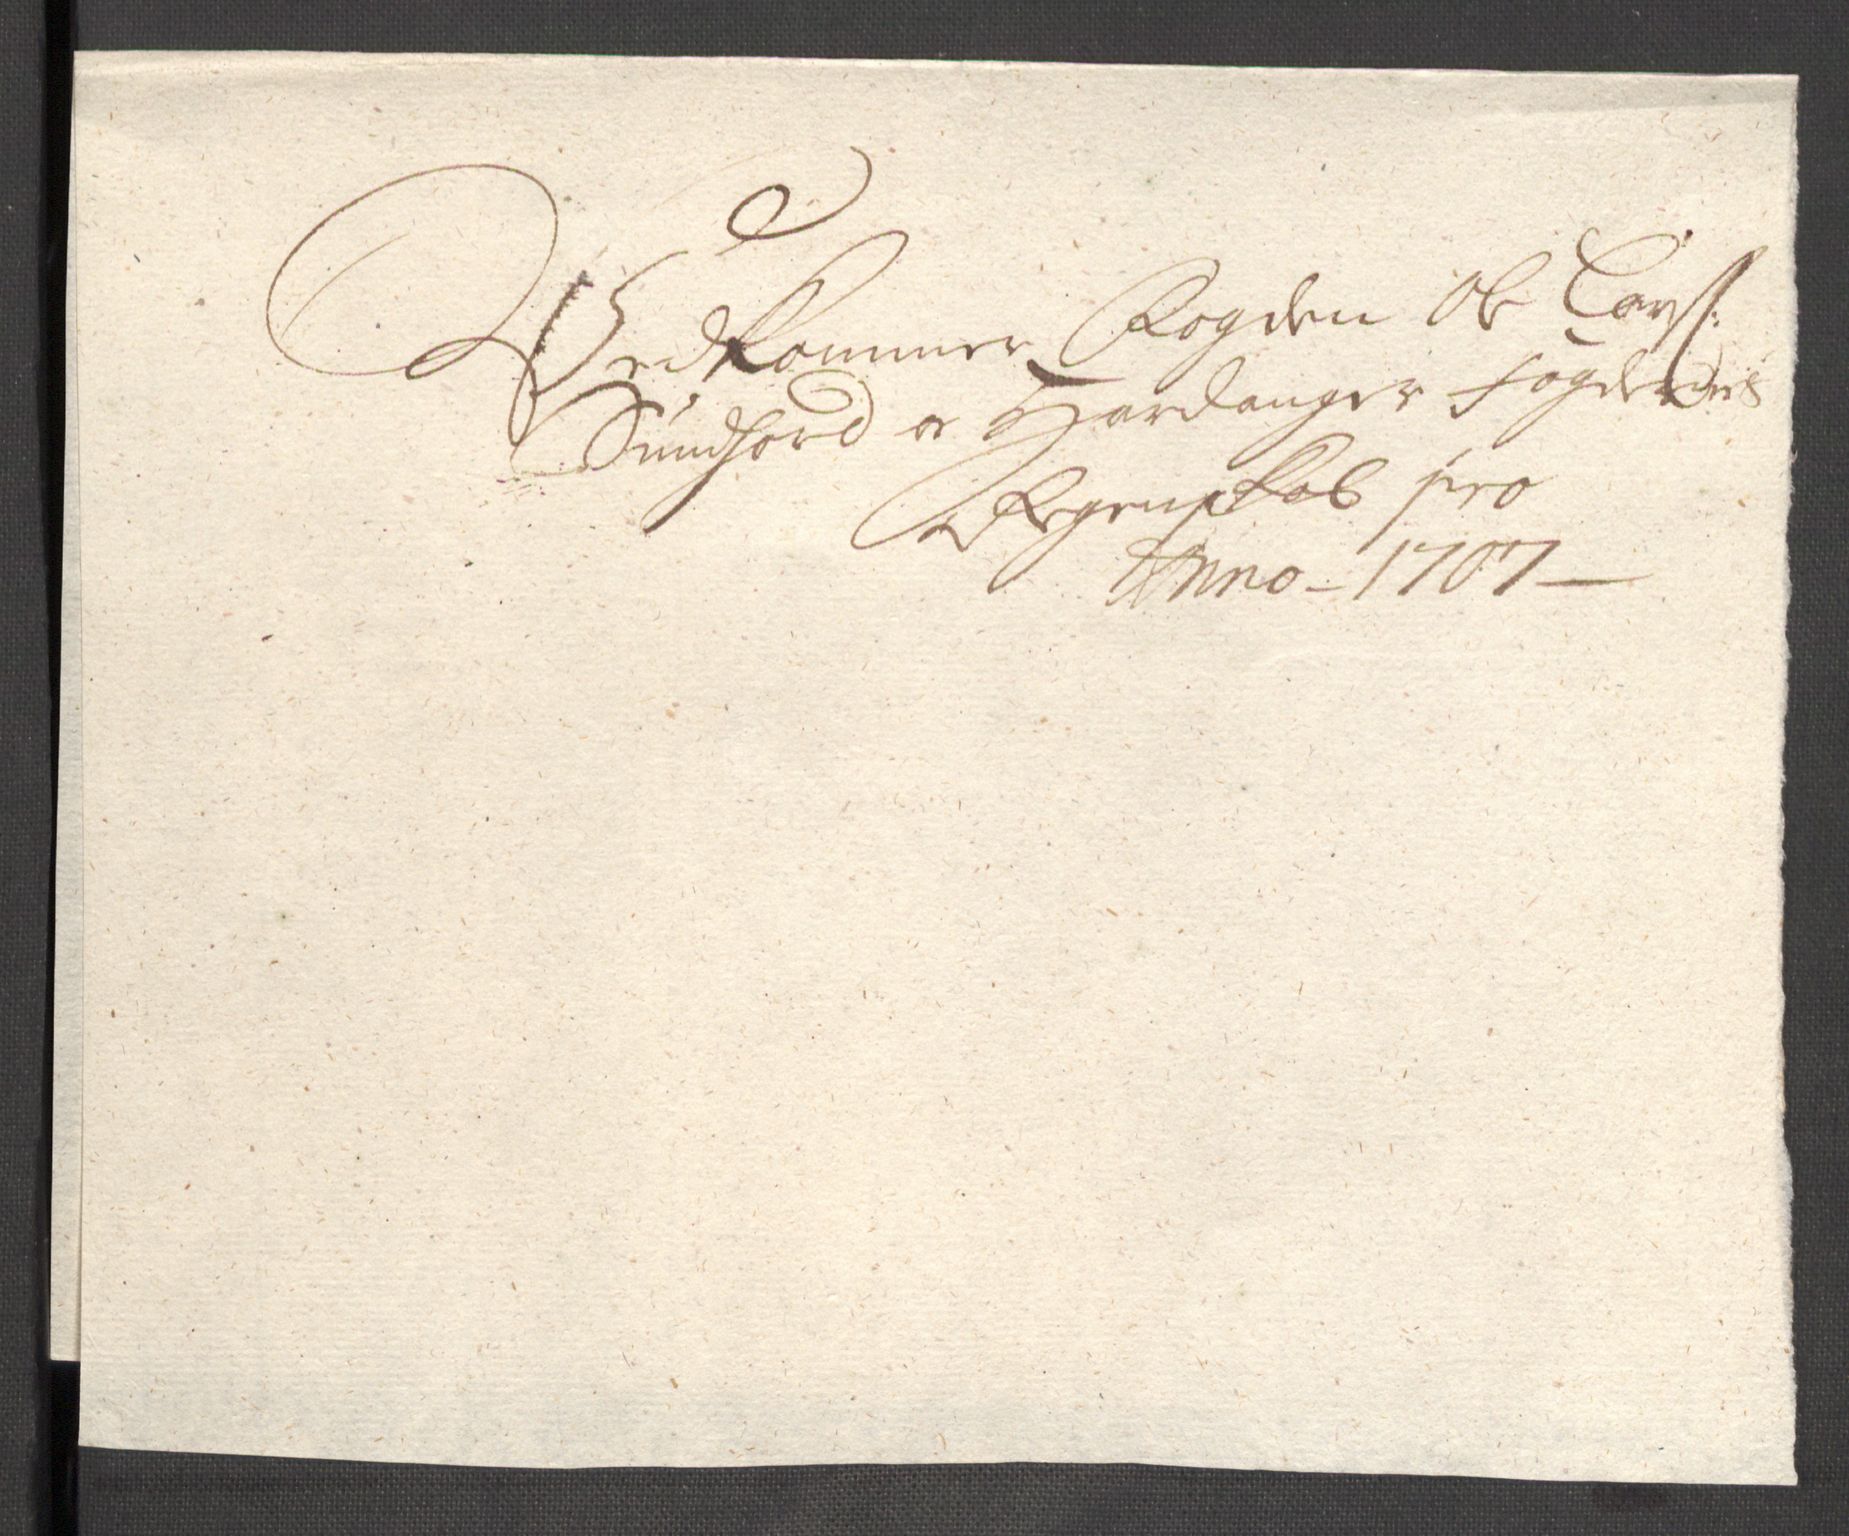 Vedkommer Fogden Ole Larss:
Sundhord og Hardanger fogderies
Regenskab pro
Anno – 1707 –